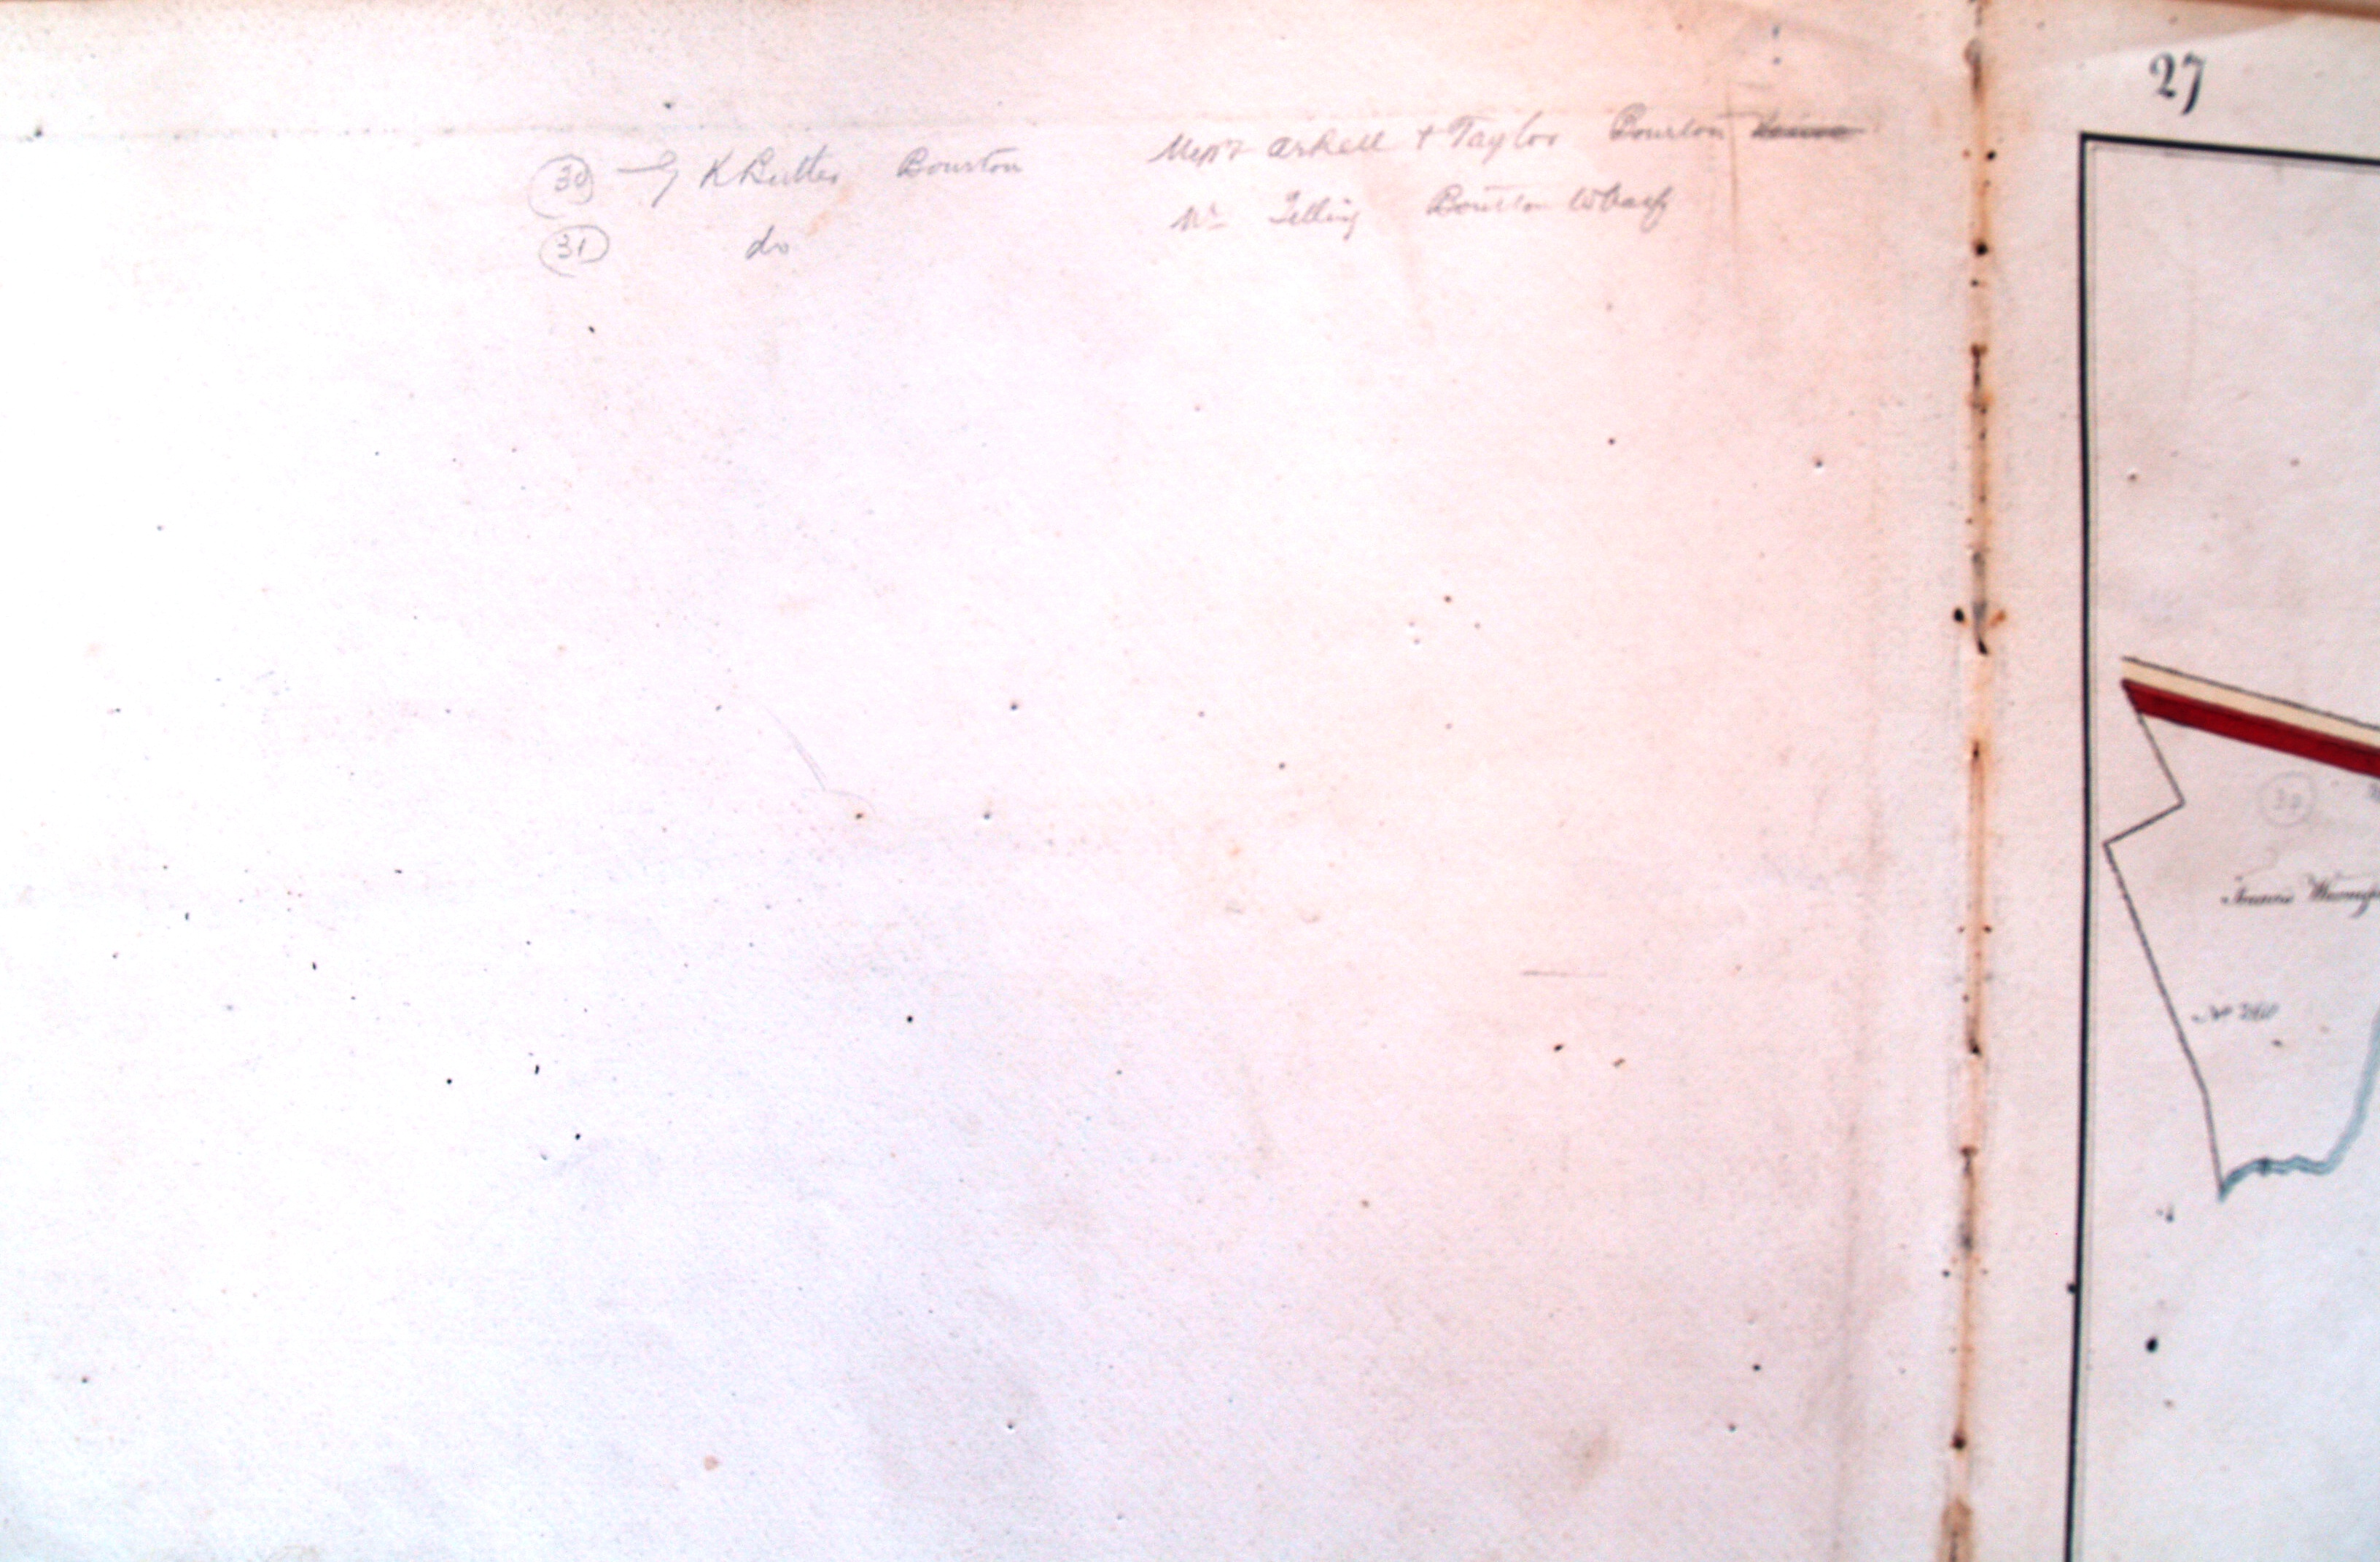 27
30 K Butler Bourton Messrs Arkell + Taylor Bourton
31 do Mr Telling Bourton Wharf
30
No